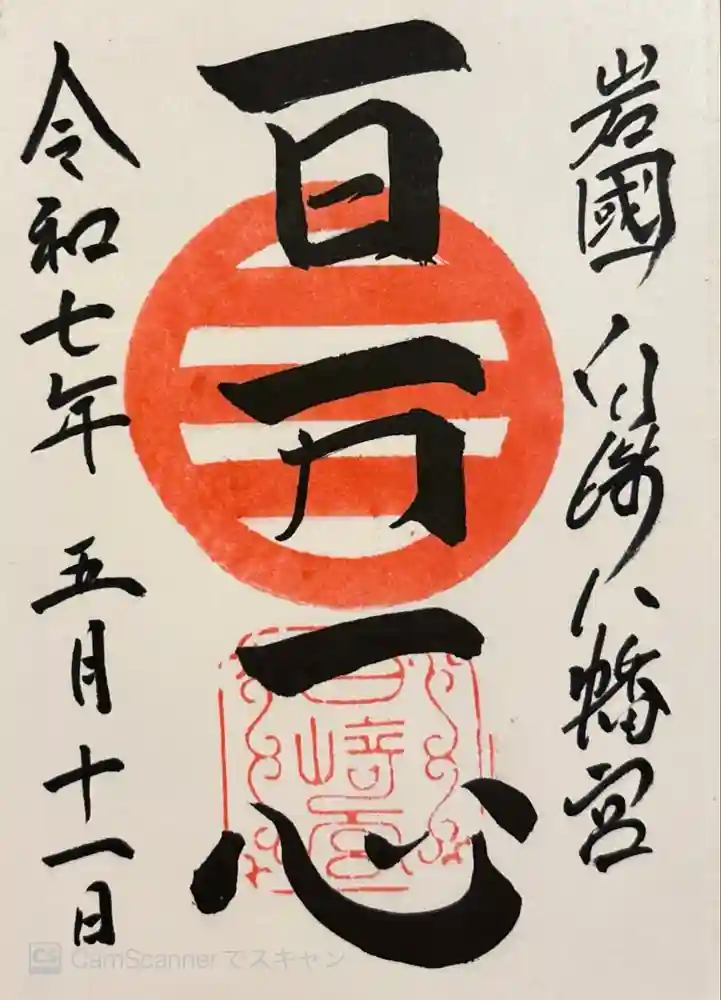 岩國 白崎八幡宮
一日一力一心
白崎宮
令和七年 五月十一日
CS CamScannerでスキャン